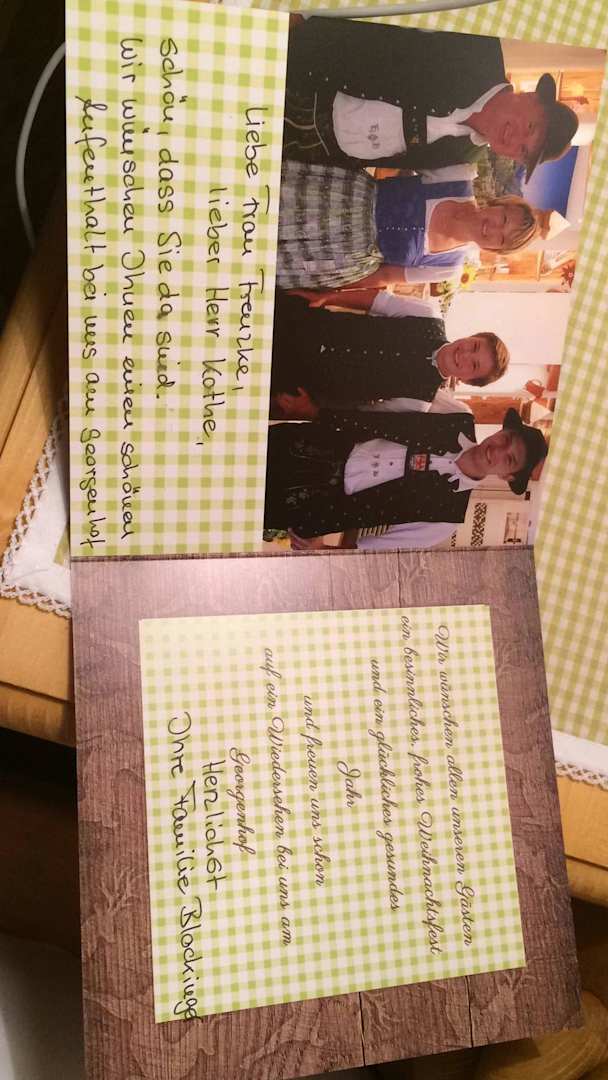 Liebe Frau Frenzke,
lieber Herr Kothe,
schön, dass Sie da sind.
Wir wünschen Ihnen einen schönen
Aufenthalt bei uns am Georgenhof
Wir wünschen allen unseren Gästen
ein besinnliches, frohes Weihnachtsfest
und ein glückliches gesundes
Jahr
und freuen uns schon
auf ein Wiedersehen bei uns am
Georgenhof
Herzlichst
Ihre Familie Blockinger